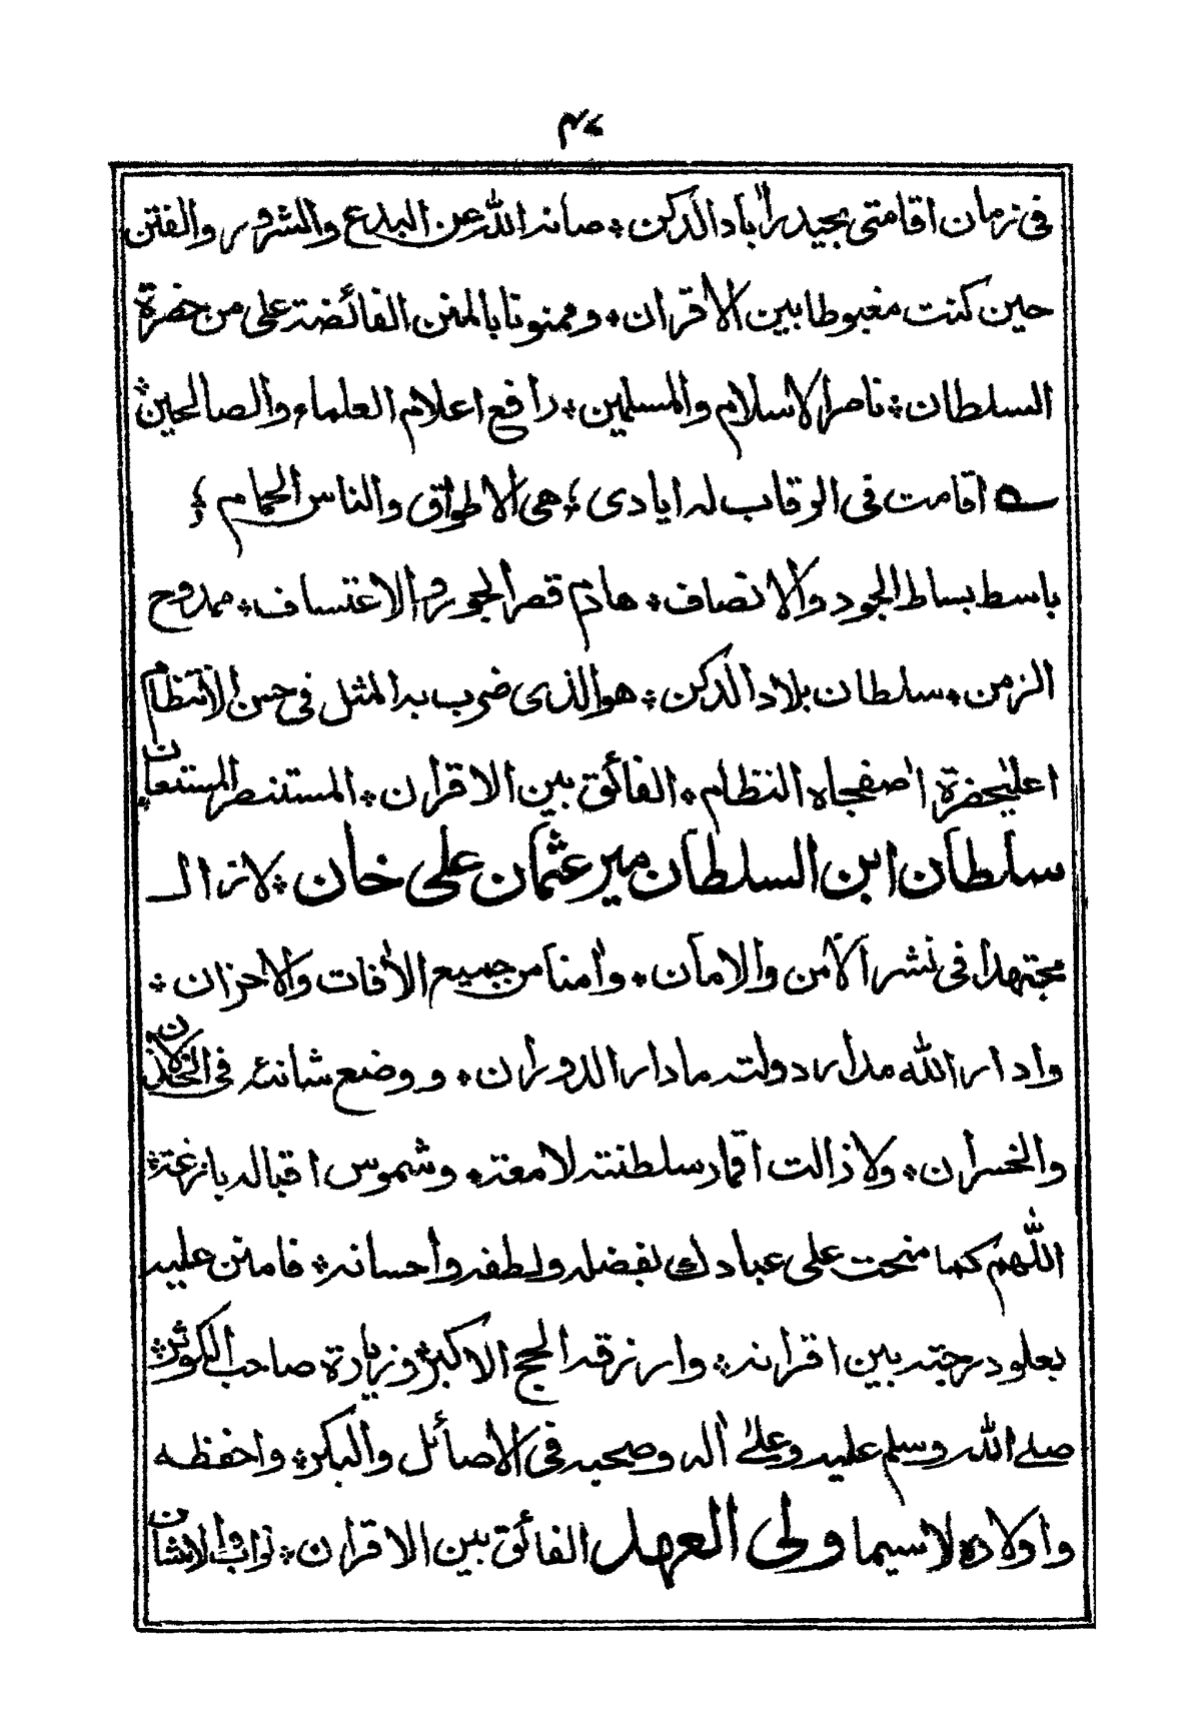 ۴۷
فى زمان اقامتى بحيدرآباد الدكن * صانه الله عن البدع والشرور والفتن
حين كنت مغبوطا بين الاقران * وممنونا بالمنن الفائضة على من حضرة
السلطان * ناصر الاسلام والمسلمين * رافع اعلام العلماء والصالحين *
؎ اقامت فى الرقاب له ايادى ؛ هى الاطواق والناس الحمام ؛
باسط بساط الجود والانصاف * هادم قصر الجور والاعتساف * ممدوح
الزمن * سلطان بلاد الدكن * هو الذى ضرب به المثل فى حسن الانتظام
اعليحضرة اصفجاه النظام * الفائق بين الاقران * المستنصر المستعان
سلطان ابن السلطان مير عثمان على خان * لازال
مجتهدا فى نشر الامن والامان * وامنا من جميع الأفات والاحزان *
وادار الله مدار دولته مادار الدوران * ووضع شانئه فى الخذلان
والخسران * ولا ذالت اقمار سلطنته لامعة * وشموس اقباله بازغة *
اللهم كما منحت على عبادك بفضله ولطفه واحسانه * فامنن عليه
بعلو درجته بين اقرانه * وارزقه الحج الاكبر * وزيارة صاحب الكوثر *
صلے الله وسلم عليه وعلےٰ أله وصحبه فى الأصائل والبكر * واحفظه
واولاده لاسيما ولى العهد الفائق بين الاقران * نواب والاشان